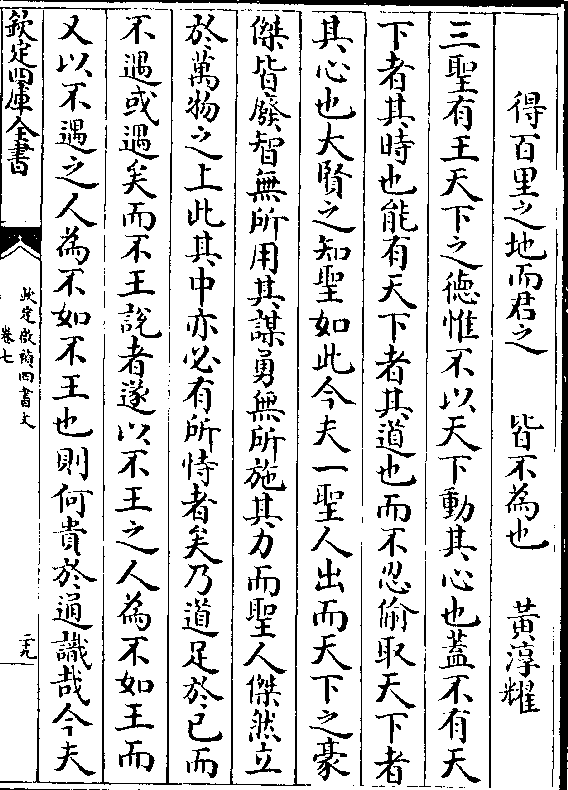 得百里之地而君之　皆不為也　黃淳耀
三聖有王天下之德惟不以天下動其心也蓋不有天
下者其時也能有天下者其道也而不忍偷取天下者
其心也大賢之知聖如此今夫一聖人出而天下之豪
傑皆廢智無所用其謀勇無所施其力而聖人傑然立
於萬物之上此其中亦必有所恃者矣乃道足於已而
不遇或遇矣而不王說者遂以不王之人為不如王而
又以不遇之人為不如不王也則何貴於通識哉今夫
欽定四庫全書
欽定啟禎四書文
卷七
二九